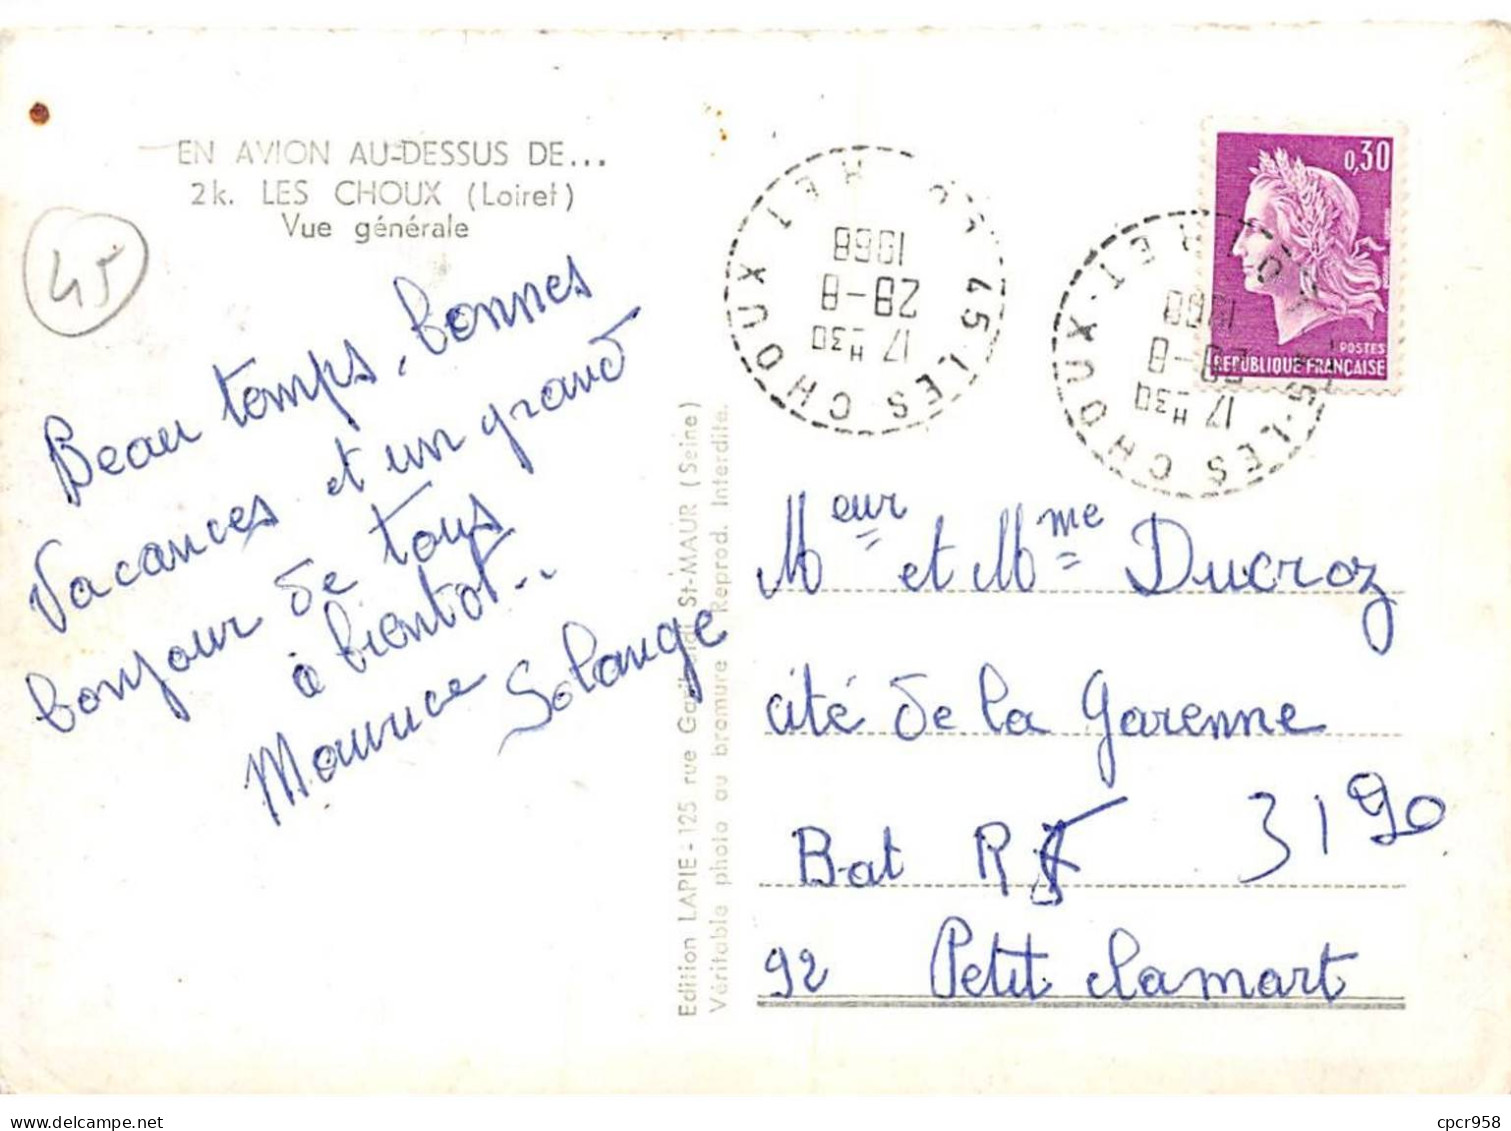 EN AVION AU-DESSUS DE...
2k. LES CHOUX (Loiret)
Vue générale
45
Beau temps, bonnes
Vacances et un grand
bonjour de tous
à bientôt..
Maurice Solange
Edition LAPIE - 125 rue Garibaldi St-MAUR (Seine)
Véritable photo au bromure Reprod. Interdite.
45 LES CHOUX
17 H30
28-8
1968
45 LES CHOUX
17 H30
0,30
POSTES
REPUBLIQUE FRANÇAISE
Meur et Mme Ducroz
cité de la Garenne
Bat R 3190
92 Petit Clamart
cpcr958